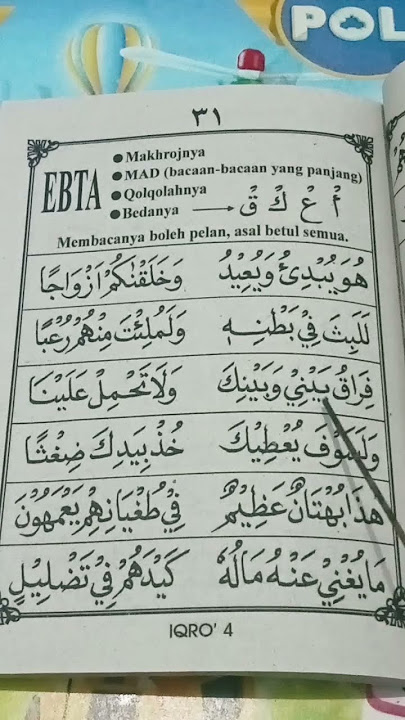 POL
٣١
EBTA
● Makhrojnya
● MAD (bacaan-bacaan yang panjang)
● Qolqolahnya
● Bedanya → أُ عُ كُ قُ
Membacanya boleh pelan, asal betul semua.
هُوَ يُبْدِئُ وَيُعِيْدُ وَخَلَقْنٰكُمْ اَزْوَاجًا
لَلَبِثَ فِيْ بَطْنِهٖ وَلَمُلِئْتَ مِنْهُمْ رُعْبًا
فِرَاقُ بَيْنِيْ وَبَيْنِكَ وَلَا تَحْمِلْ عَلَيْنَا
وَلَسَوْفَ يُعْطِيْكَ خُذْ بِيَدِكَ ضِغْثًا
هٰذَا بُهْتَانٌ عَظِيْمٌ فِيْ طُغْيَانِهِمْ يَعْمَهُوْنَ
مَا يُغْنِيْ عَنْهُ مَالُهٗ كَيْدَهُمْ فِيْ تَضْلِيْلٍ
IQRO' 4